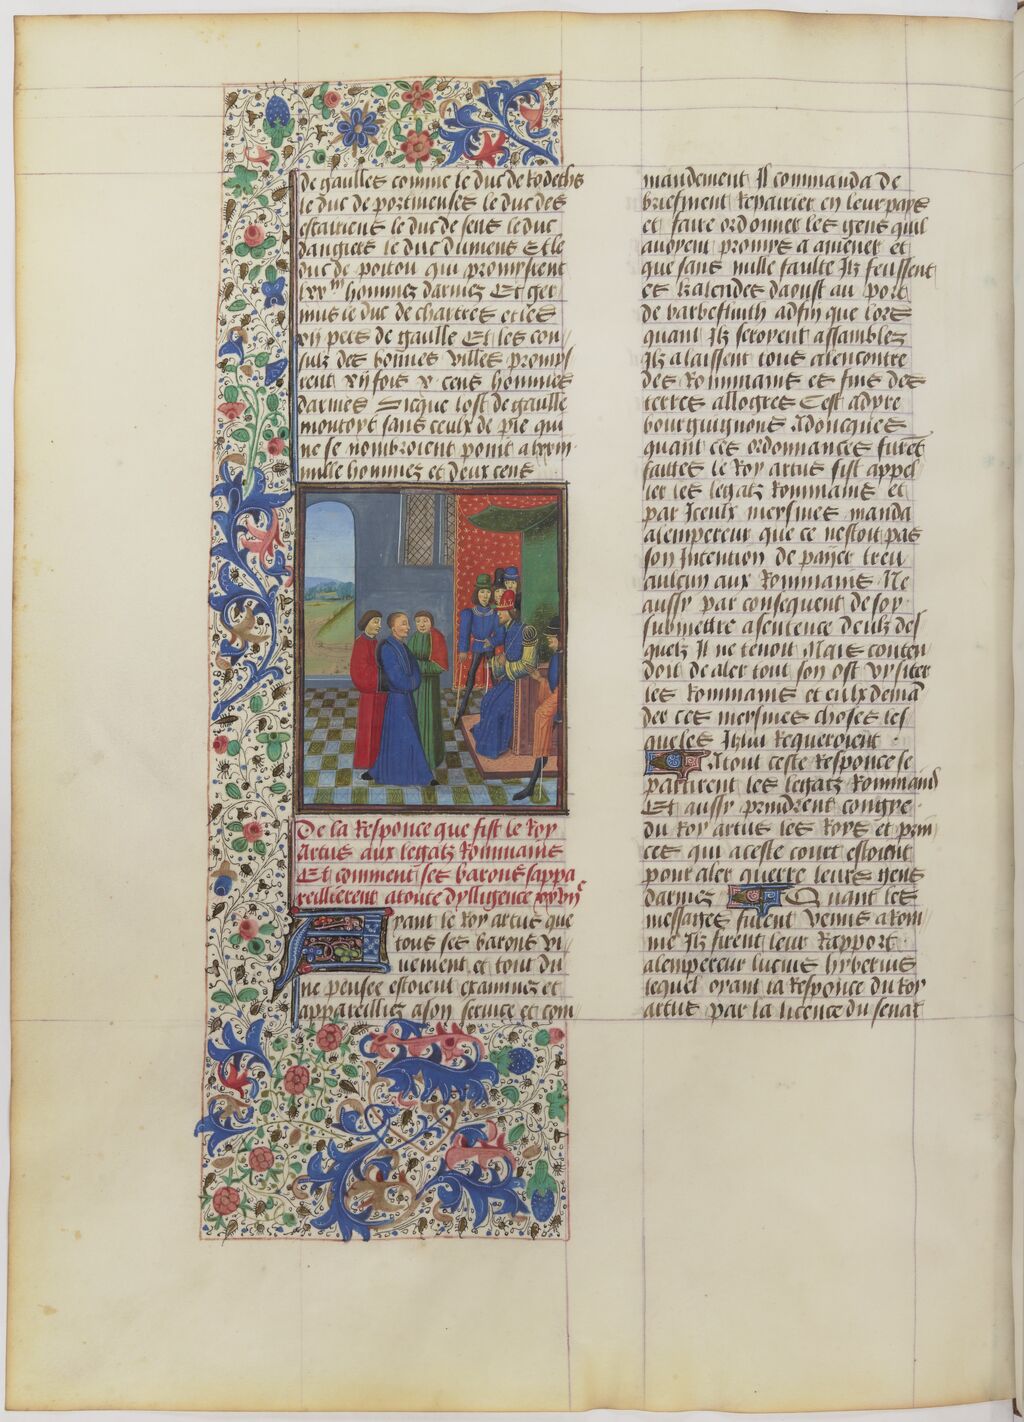 de gaulles comme le duc de Rodeths
le duc de portinenses le duc des
estairiens le duc de sens le duc
dangiers le duc dumens Et le
duc de poitou qui promysrent
hommez darmez Et ger
mus le duc de chartres et les
xij pers de gaulle Et les con
sulz des bonnes villes promys
rent xij fois x cens hommes
darmes Sicque lost de gaulle
montoyt sans ceulx de pie qui
ne se nombroient point a
mille hommez et deux cens
De la Responce que fist le Roy
Artus aux legatz Rommains
Et comment ses barons sappa
reillierent atoute dylligence
Ayant le Roy artus que
tous ses barons vi
uement et tout du
ne pensee estoient examinez et
appareilliez a son seruice et com
mandement Il commanda de
briefment Repairier en leur pays
et faire ordonner les gens quil
auoyent promys a amener et
que sans nulle faulte Ilz feussent
es kalendes daoust au port
de barbefluith adfin que lors
quant Ilz seroyent assamblez
Ilz alaissent tous alencontre
des Rommains es fins des
terres allogres Cest adyre
bourguignons Adoncques
quant ces ordonnances furet
faittes le Roy artus fist appel
ler les legatz Rommains et
par Iceulx meysmes manda
alempereur que ce nestoit pas
son Intention de payer treu
aulcun aux Rommains Ne
aussy par consequent de soy
submettre a sentence deulz des
quelz Il ne tenoit Mais conten
doit de aler tout son ost vysiter
les Rommains et eulx deman
der ces meysmes choses les
queles Ilz lui Requeroient
Atout ceste Responce se
partirent les legatz Rommains
Et aussy prindrent congye
du Roy artus les Roys et prin
ces qui a ceste court estoient
pour aler querre leurs gens
darmes Quant les
messages furent venus a Rom
me Ilz firent leur Rapport
alempereur lucius hyberius
lequel oyant la Responce du Roy
artus par la licence du senat